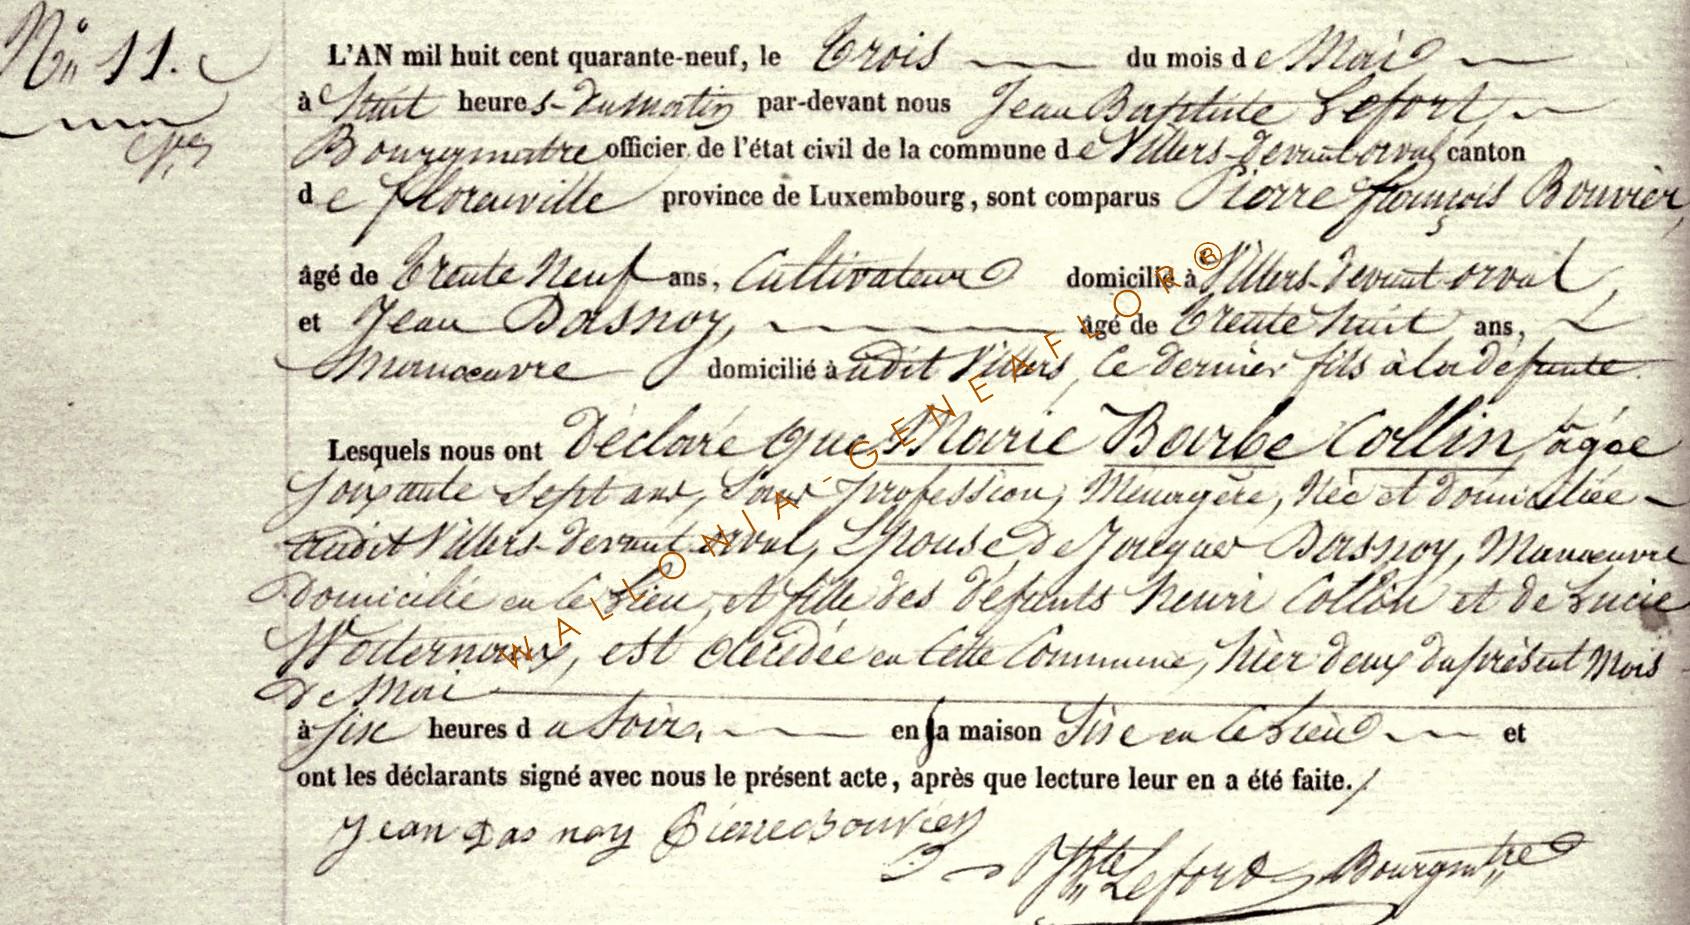 N° 11.
L'AN mil huit cent quarante-neuf, le Trois du mois de Mai
à huit heures du matin par-devant nous Jean Baptiste Lefort,
Bourgmestre officier de l'état civil de la commune de Villers-devant-orval canton
de florenville province de Luxembourg, sont comparus Pierre françois Bouvier,
âgé de trente neuf ans, Cultivateur domicilié à Villers-devant orval,
et Jean Dasnoy, âgé de trente huit ans,
Manoeuvre domicilié audit Villers, ce dernier fils à la défunte.
Lesquels nous ont déclaré que Marie Barbe Collin, âgée
soixante sept ans, sans profession, Ménagère, Née et domiciliée
audit Villers-devant orval, Epouse de Jacques Dasnoy, Manoeuvre
domicilié en ce lieu, et fille des défunts henri Collin et de Lucie
est décédée en cette Commune, hier deux du présent Mois
de Mai
à six heures du soir, en sa maison sise en ce lieu et
ont les déclarants signé avec nous le présent acte, après que lecture leur en a été faite./
jean das noy Pierre bouvier
Jh Bte Lefort Bourgmtre
WALLONIA-GENEAFLOR®